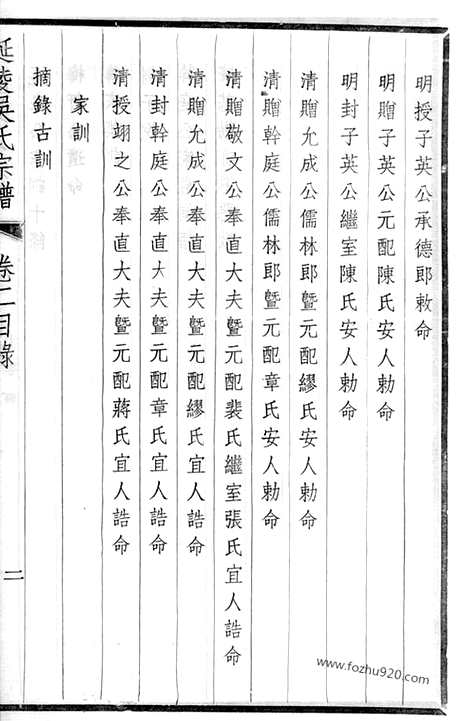 明授子英公承德郎敕命
明贈子英公元配陳氏安人勅命
明封子英公繼室陳氏安人勅命
清贈允成公儒林郎暨元配繆氏安人勅命
清贈幹庭公儒林郎暨元配章氏安人勅命
清贈敬文公奉直大夫暨元配裴氏繼室張氏宜人誥命
清贈允成公奉直大夫暨元配繆氏宜人誥命
清封幹庭公奉直大夫暨元配章氏宜人誥命
清授翊之公奉直大夫暨元配蔣氏宜人誥命
家訓
摘錄古訓
延陵吳氏宗譜 卷二目錄 二
www.fozhu920.com